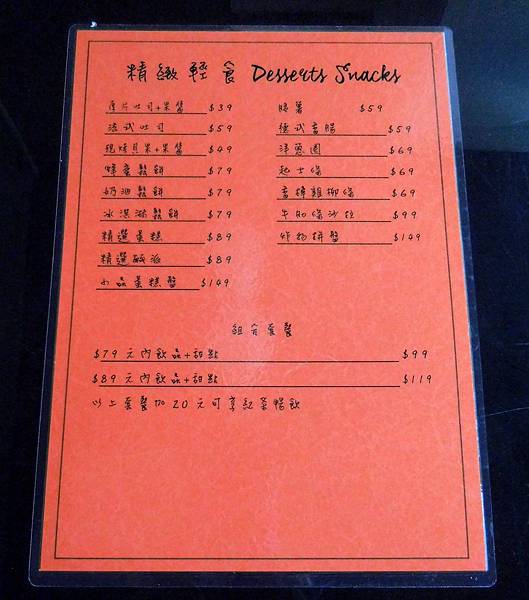 精緻輕食 Desserts Snacks
厚片吐司+果醬 $39
法式吐司 $59
現烤貝果+果醬 $49
蜂蜜鬆餅 $79
奶油鬆餅 $79
冰淇淋鬆餅 $79
精選蛋糕 $89
精選鹹派 $89
小品蛋糕盤 $149
脆薯 $59
德式香腸 $59
洋蔥圈 $69
起士條 $69
香檸雞柳條 $69
牛肋條沙拉 $99
炸物拼盤 $149
組合套餐
$79元內飲品+甜點 $99
$89元內飲品+甜點 $119
以上套餐加20元可享紅茶暢飲